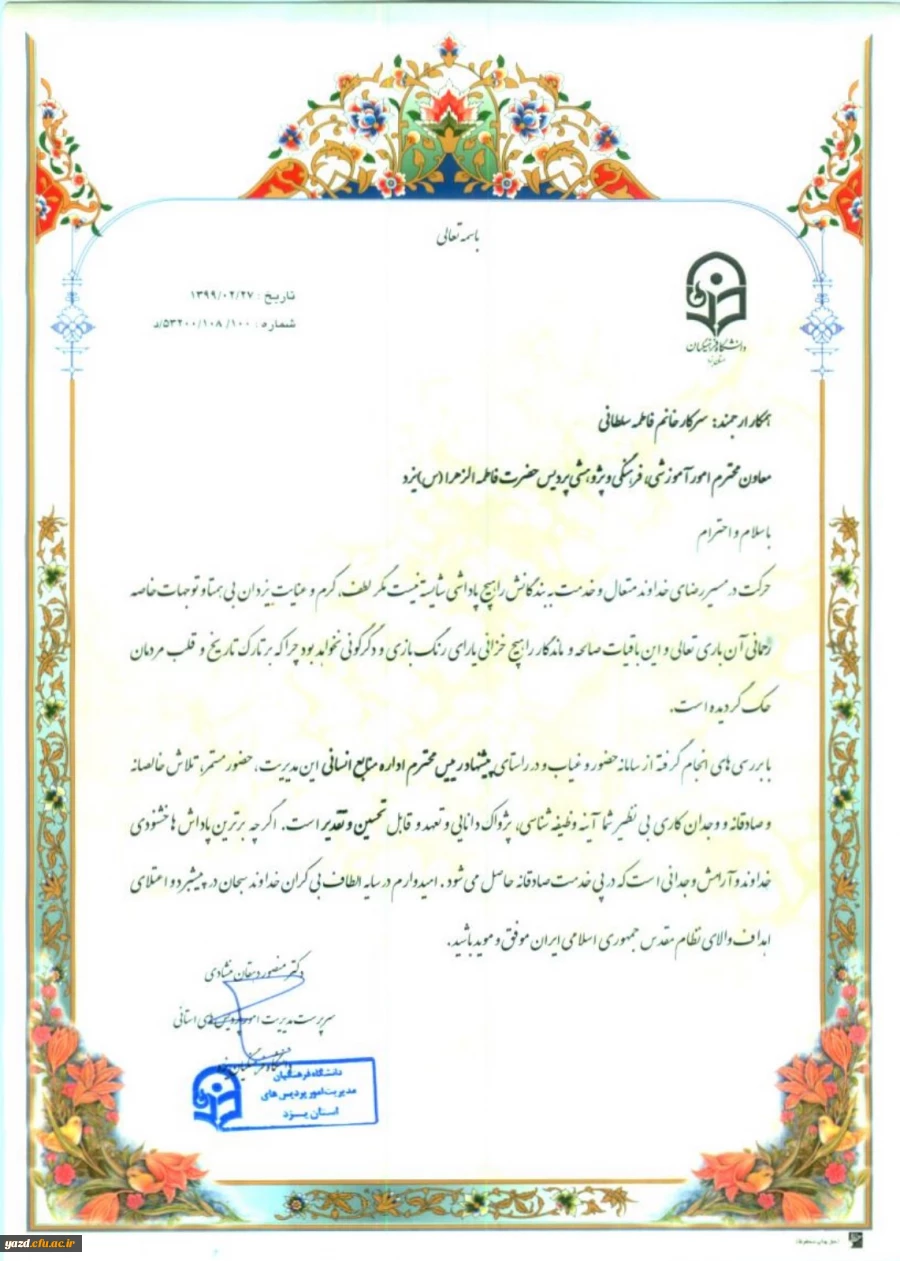 باسمه تعالی
تاریخ : ۱۳۹۹/۰۲/۲۷
شماره : ۵۳۲۰۰/۱۰۸/۱۰۰/د
دانشگاه فرهنگیان
استان یزد
همکار ارجمند: سرکار خانم فاطمه سلطانی
معاون محترم امور آموزشی، فرهنگی و پژوهشی پردیس حضرت فاطمه الزهرا (س) یزد
با سلام و احترام
حرکت در مسیر رضای خداوند متعال و خدمت به بندگانش را هیچ پاداشی شایسته نیست مگر لطف، کرم و عنایت یزدان بی همتا و توجهات خاصه
رحمانی آن باری تعالی و این باقیات صالحه و ماندگار را هیچ خزانی یارای رنگ بازی و دگرگونی نخواهد بود چرا که بر تارک تاریخ و قلب مردمان
حک گردیده است.
با بررسی های انجام گرفته از سامانه حضور و غیاب و در راستای پیشنهاد رییس محترم اداره منابع انسانی این مدیریت، حضور مستمر، تلاش خالصانه
و صادقانه و وجدان کاری بی نظیر شما آینه وظیفه شناسی، پژواک دانایی و تعهد و قابل تحسین و تقدیر است. اگر چه برترین پاداش ها خشنودی
خداوند و آرامش وجدانی است که در پی خدمت صادقانه حاصل می شود. امیدوارم در سایه الطاف بی کران خداوند سبحان در پیشبرد و اعتلای
اهداف والای نظام مقدس جمهوری اسلامی ایران موفق و موید باشید.
دکتر منصور دهقان منشادی
سرپرست مدیریت امور پردیس های استانی
دانشگاه فرهنگیان یزد
دانشگاه فرهنگیان
مدیریت امور پردیس های
استان یزد
yazd.cfu.ac.ir